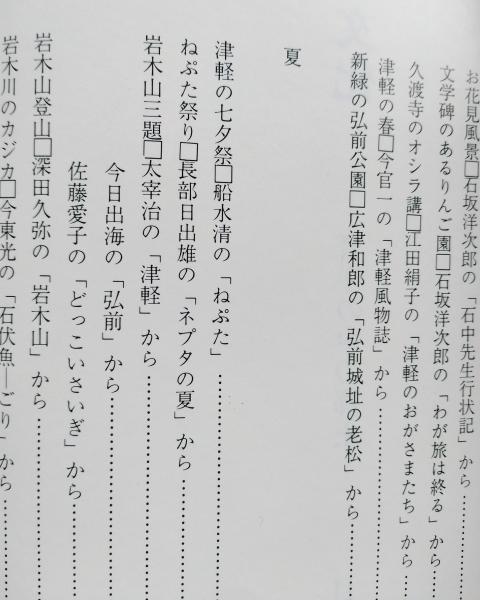 お花見風景□石坂洋次郎の「石中先生行状記」から………
文学碑のあるりんご園□石坂洋次郎の「わが旅は終る」から………
久渡寺のオシラ講□江田絹子の「津軽のおがさまたち」から………
津軽の春□今官一の「津軽風物誌」から………
新緑の弘前公園□広津和郎の「弘前城址の老松」から………
夏
津軽の七夕祭□船水清の「ねぷた」………
ねぷた祭り□長部日出雄の「ネプタの夏」から………
岩木山三題□太宰治の「津軽」から………
今日出海の「弘前」から………
佐藤愛子の「どっこいさいぎ」から………
岩木山登山□深田久弥の「岩木山」から………
岩木川のカジカ□今東光の「石伏魚―ごり」から………